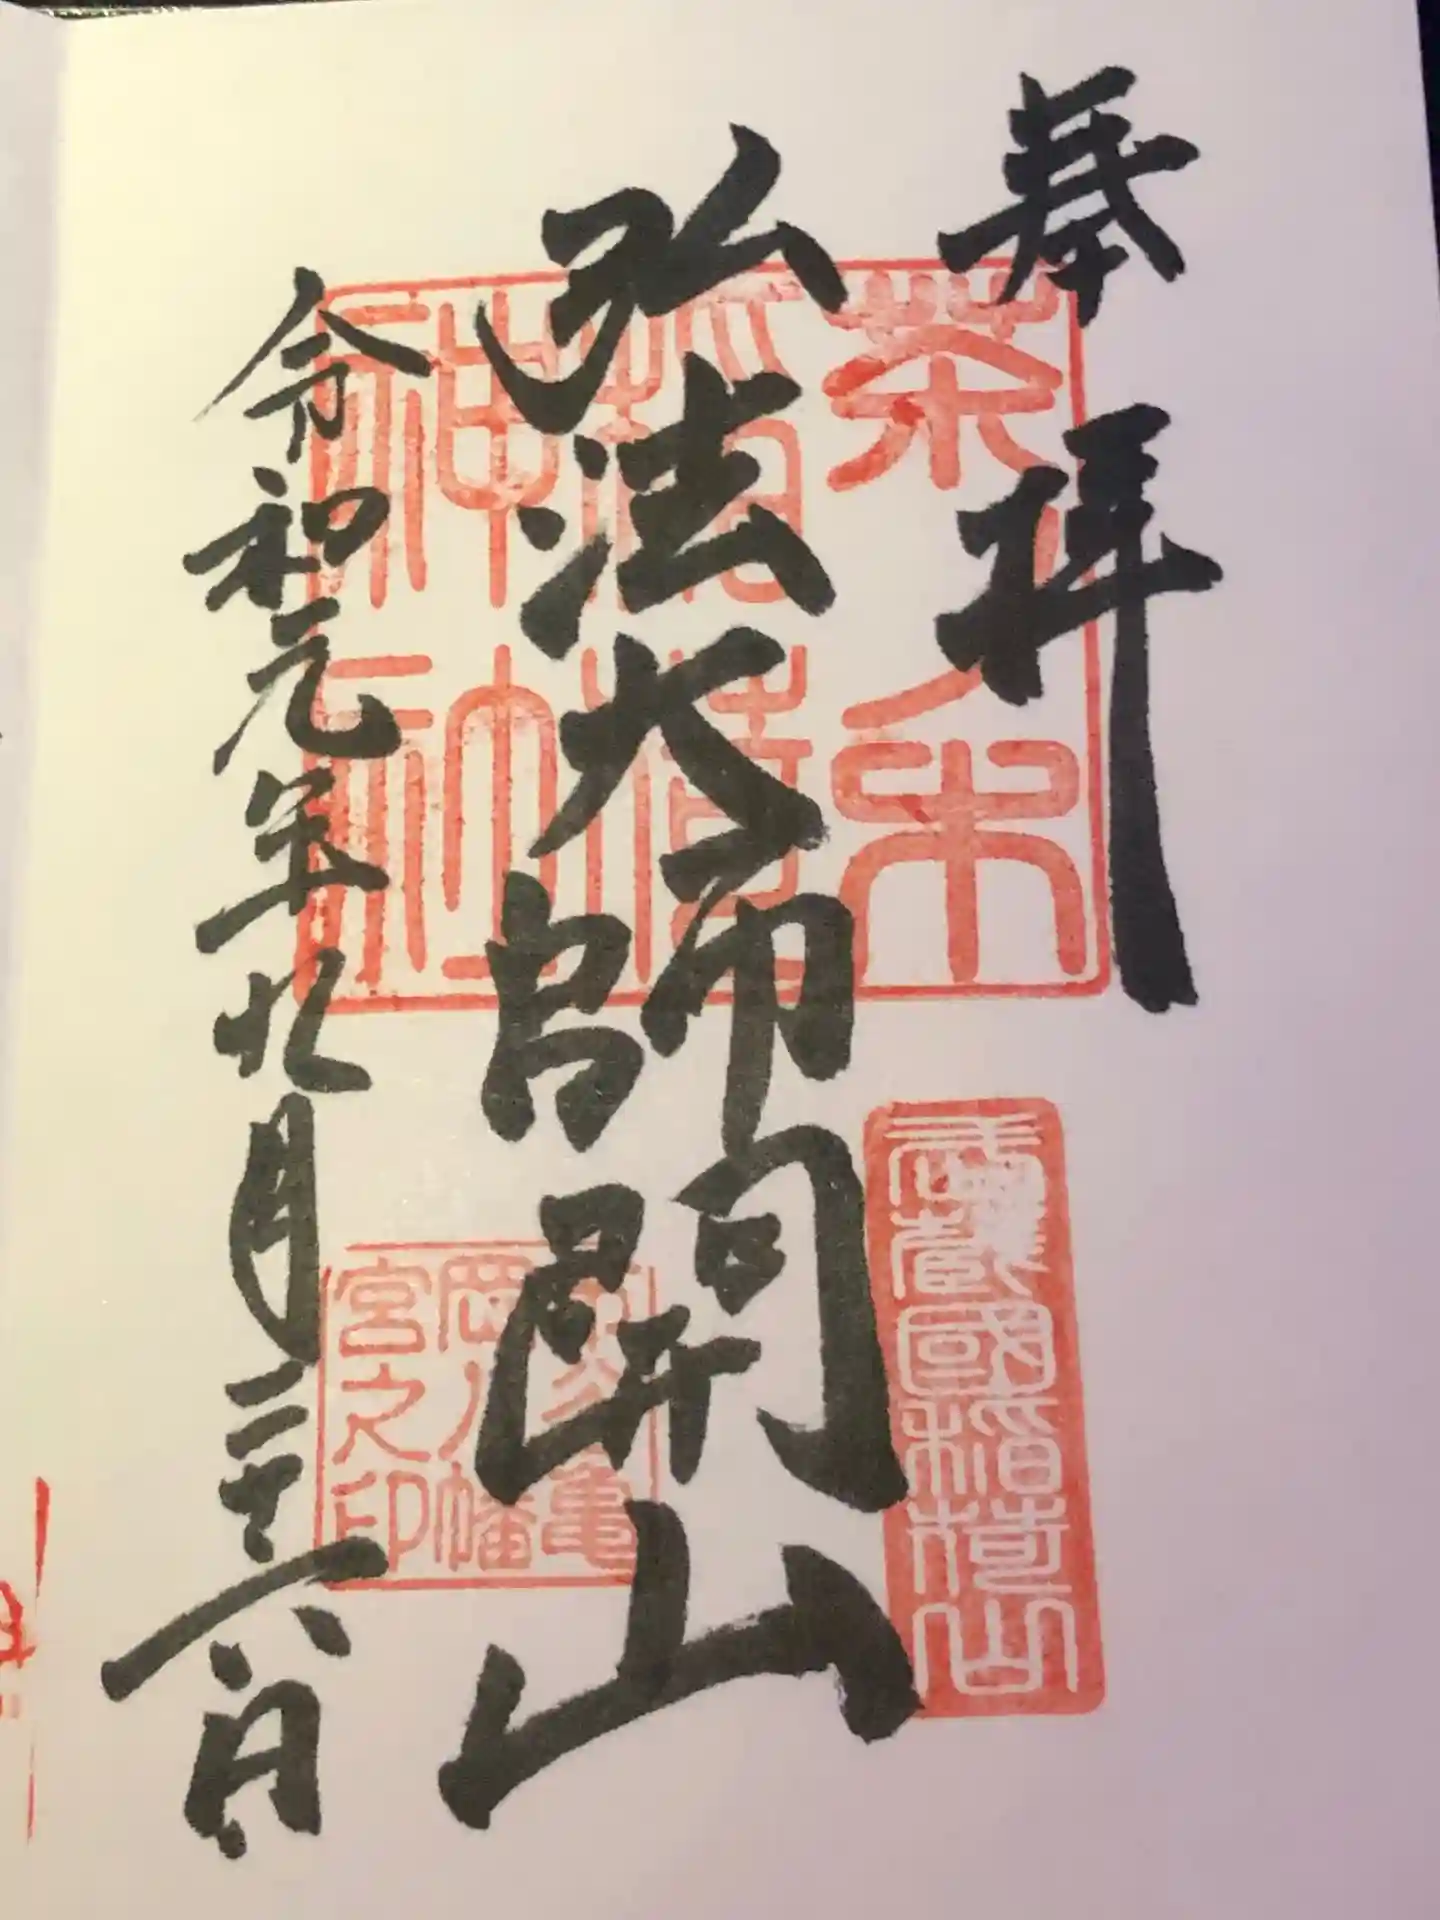 奉拝
弘法大師開山
令和元年九月二十八日
茶ノ木
稲荷
神社
武蔵國稲荷山
市谷亀
岡八幡
宮之印